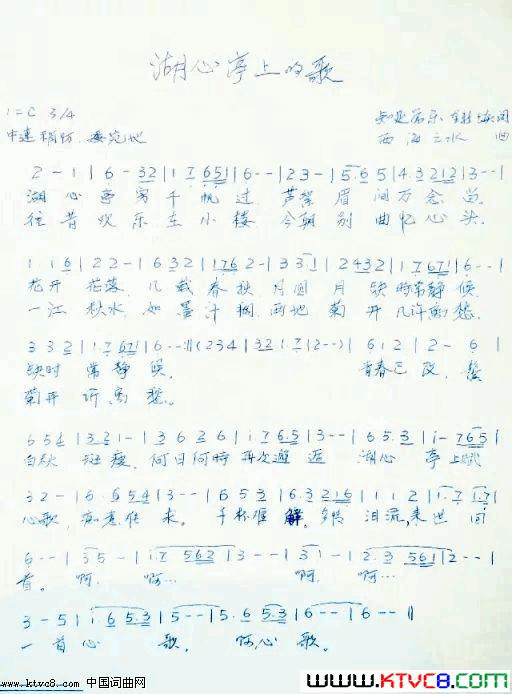 湖心亭上的歌
1=C 3/4
中速稍快 委宛地
西海之水 曲
2 - 1 | 6 - 32 | 1 7 65 | 6 - - | 6 - - | 2 3 - | 5. 6 5 | 4. 3 212 | 3 - - |
湖 心 亭 旁 千 帆 过. 芦 眉 间 万 念
往 昔 欢 乐 在 小 楼 今朝 别 曲 忆 心 头.
1 1 6 | 2 2 - | 6 32 | 176 2 - | 3 3 1 | 2 432 | 1 7 67 | 6 - - |
花开 花落, 几 载 春秋. 月圆 月 缺 时常静 候.
一江 秋水, 如 墨汁 稠. 两地 菊 开 几许离 愁.
3 3 2 | 1. 7 67 | 6 - - :|| ( 2 3 4 | 32 1. 7 | 2 - - ) | 6 1 2 | 2 - 6 |
缺时 常 静 候. 青春已 改, 鬓
菊开 许 离 愁.
6 5 4 | 3 2 1 - | 3 6 2 6 | 1. 7 6.5 | 3 - - | 6 5. 3 | 1 - 765 |
白秋 斑瘦, 何日何时 再次邂 逅 湖心 亭上
3 2 - | 6. 6 5 4 | 3 - - | 6 5 3 | 6. 3 216 | 1 1 2 | 1. 7 1. 7 |
心歌, 任 来. 千杯 解 泪流, 来世 回
6 - - | 3 5 - | 1. 7 562 | 3 - - | 3 1 - | 2. 3 561 | 2 - - |
首。 啊. 啊… 啊. 啊…
3 - 5 | 1. 6 5.3 | 5 - - | 5. 6 5.3 | 6 - - | 6 - - ||
一 首 心 歌. 心 歌.
www.ktvc8.com 中国词曲网
WWW.KTVC8.COM